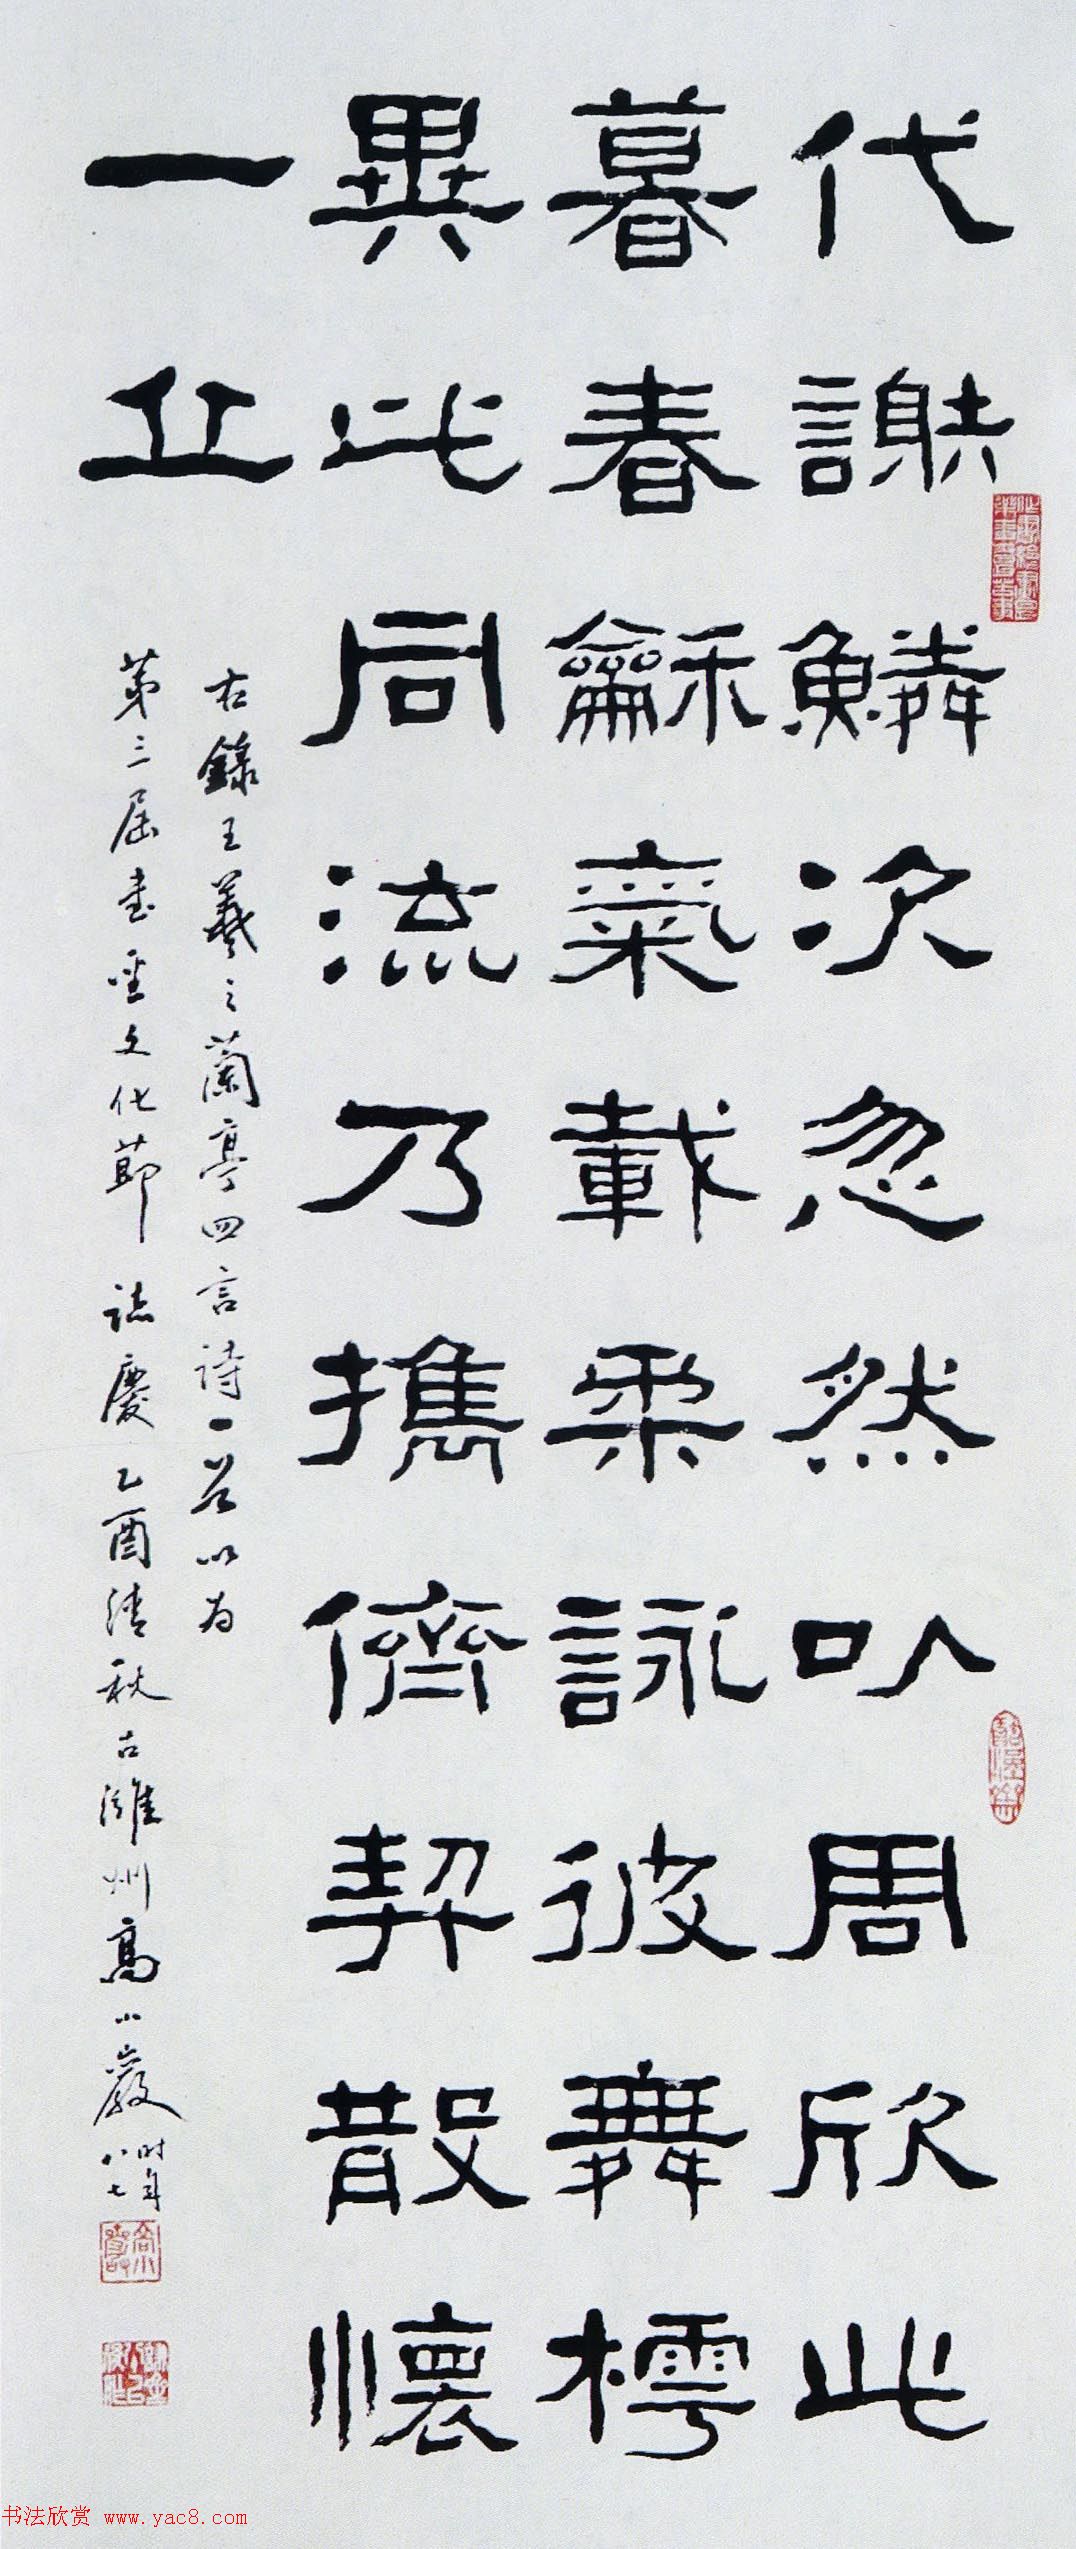 代謝鱗次忽然以周欣此
暮春龢氣載柔詠彼舞樗
異世同流乃攜儕契散懷
一丘
右錄王羲之蘭亭四言詩一首以为
第三屆書聖文化節誌慶乙酉清秋古濰州高小巖時年八七
书法欣赏 www.yac8.com